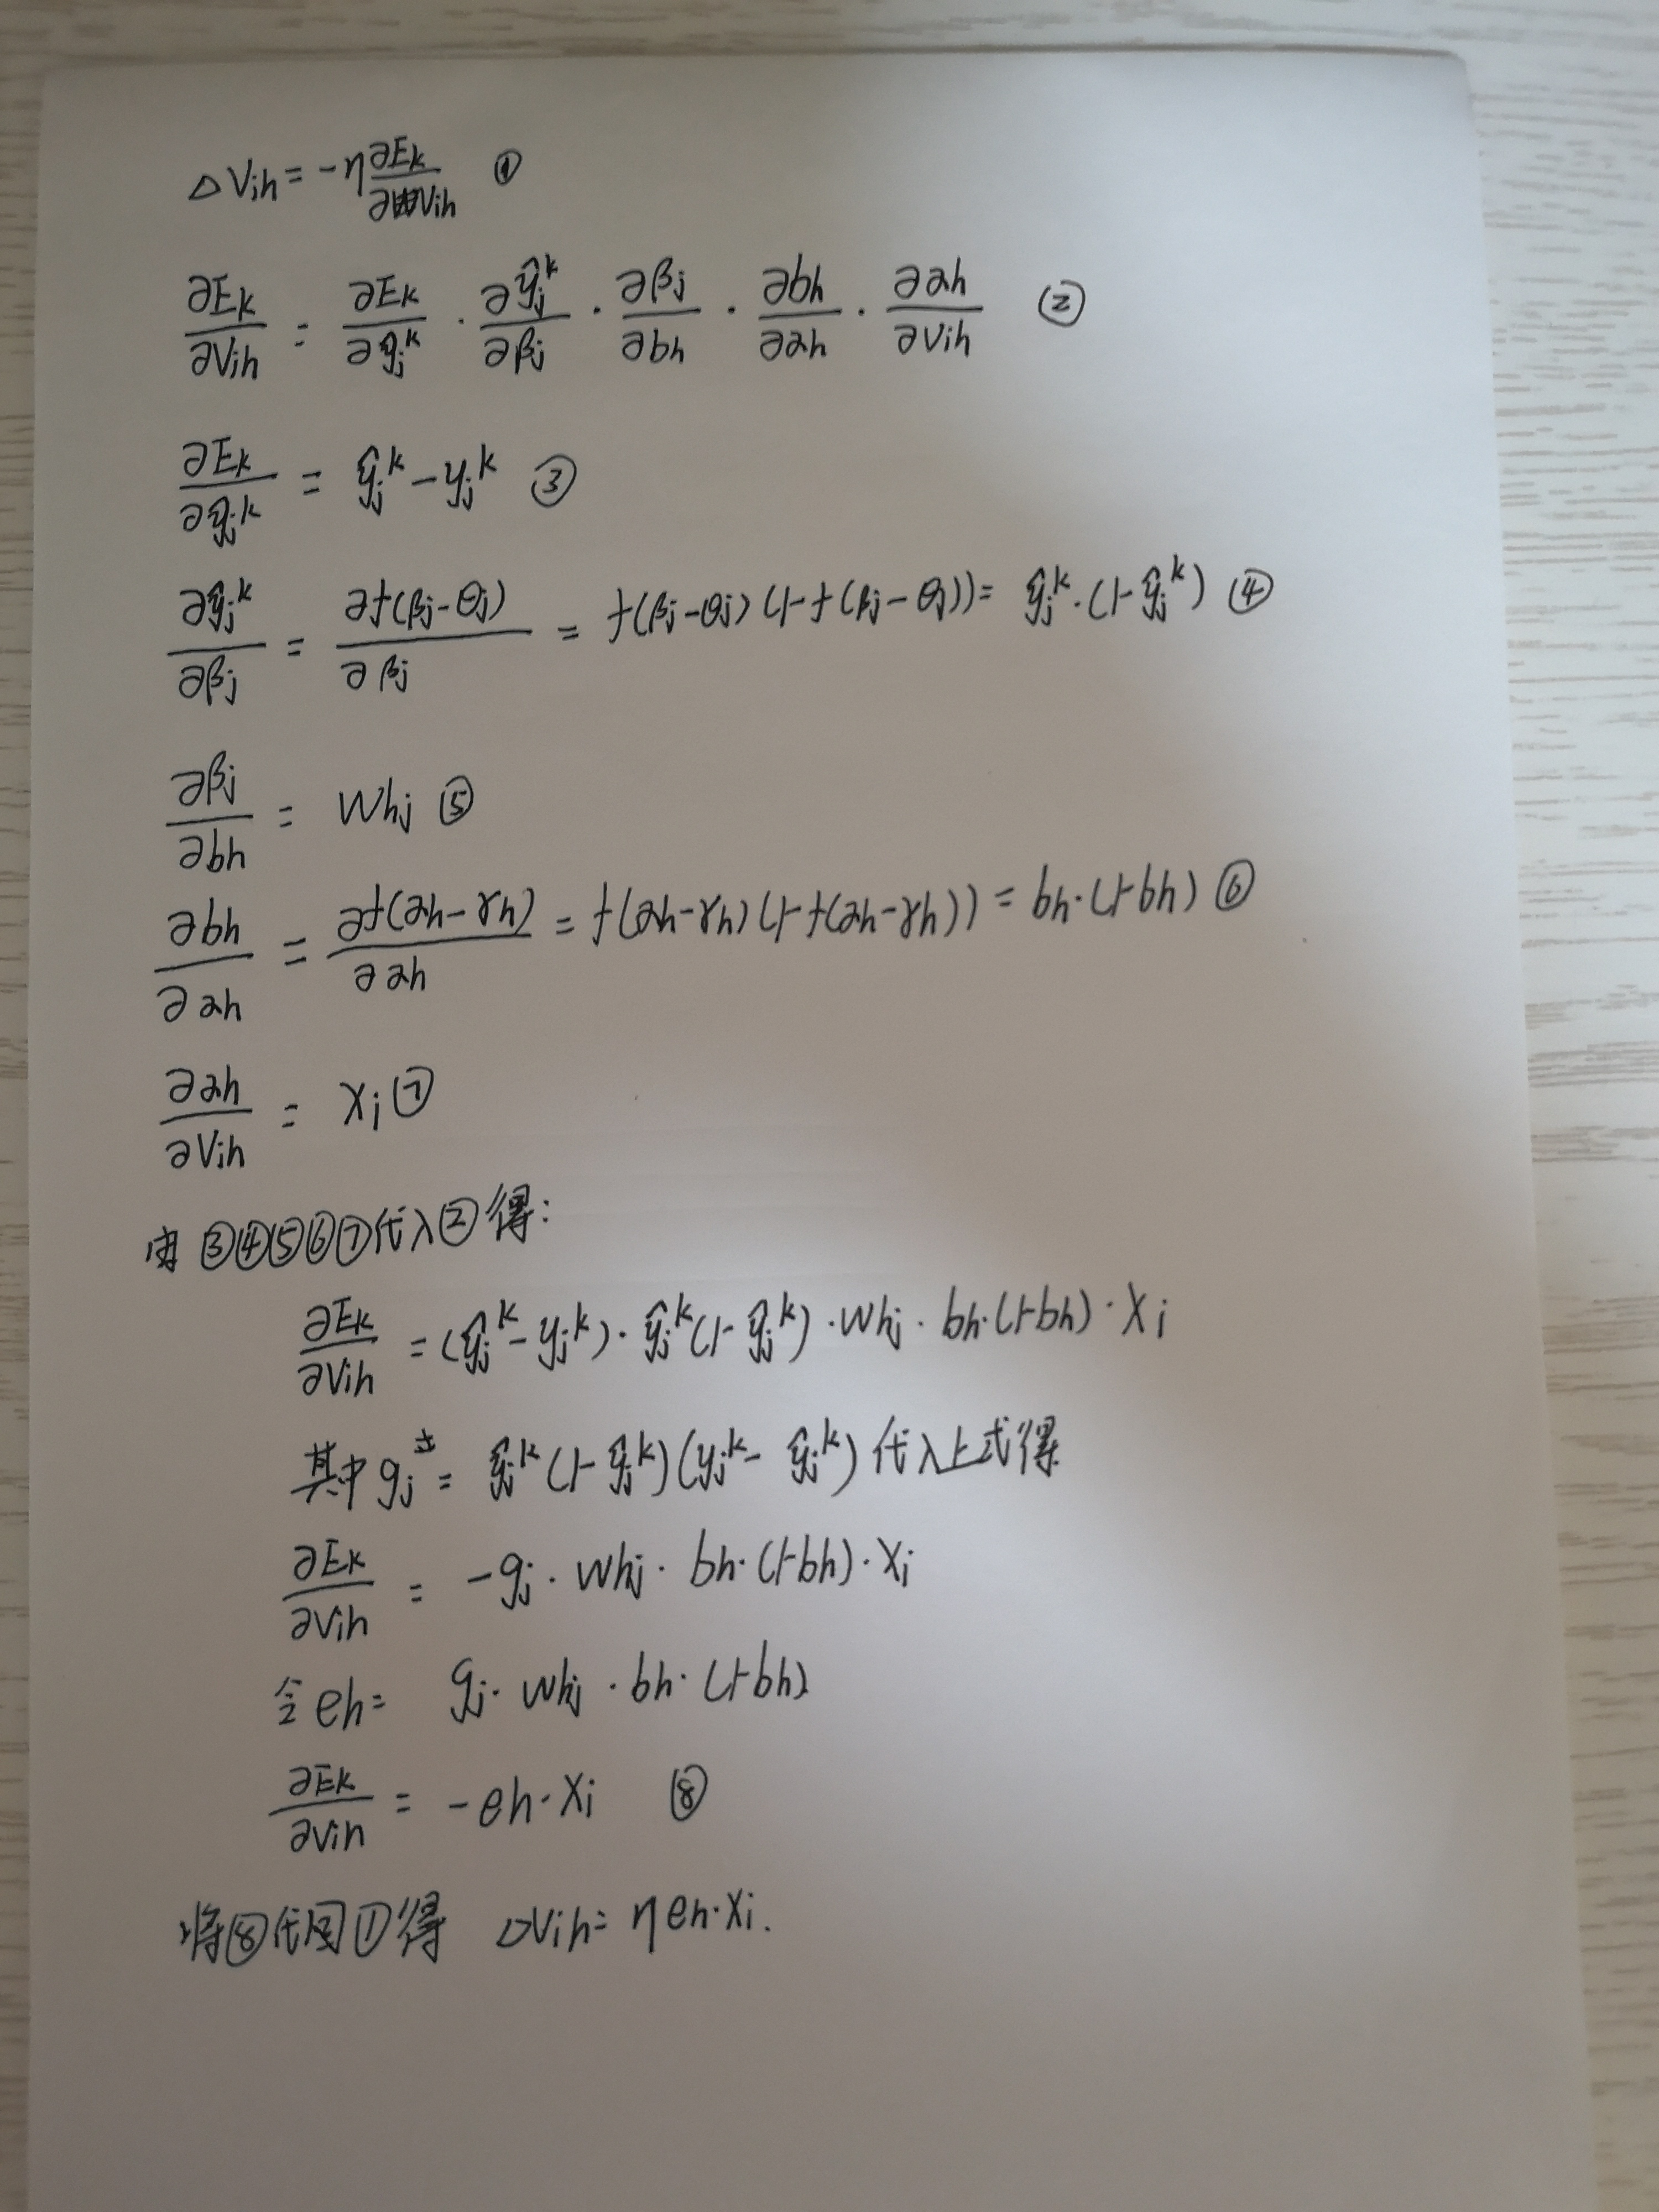 △Vih = -η ∂Ek/∂Vih ①
∂Ek/∂Vih = ∂Ek/∂ŷj^k · ∂ŷj^k/∂βj · ∂βj/∂bh · ∂bh/∂αh · ∂αh/∂Vih ②
∂Ek/∂ŷj^k = ŷj^k - yj^k ③
∂ŷj^k/∂βj = ∂f(βj-θj)/∂βj = f(βj-θj)(1-f(βj-θj)) = ŷj^k·(1-ŷj^k) ④
∂βj/∂bh = Whj ⑤
∂bh/∂αh = ∂f(αh-γh)/∂αh = f(αh-γh)(1-f(αh-γh)) = bh·(1-bh) ⑥
∂αh/∂Vih = Xi ⑦
③④⑤⑥⑦代入②得:
∂Ek/∂Vih = (ŷj^k-yj^k)·ŷj^k(1-ŷj^k)·Whj·bh·(1-bh)·Xi
其中gj = ŷj^k(1-ŷj^k)(yj^k-ŷj^k)代入上式得
∂Ek/∂Vih = -gj·Whj·bh·(1-bh)·Xi
令eh = gj·Whj·bh·(1-bh)
∂Ek/∂Vih = -eh·Xi ⑧
将⑧代回①得 △Vih = ηeh·Xi.